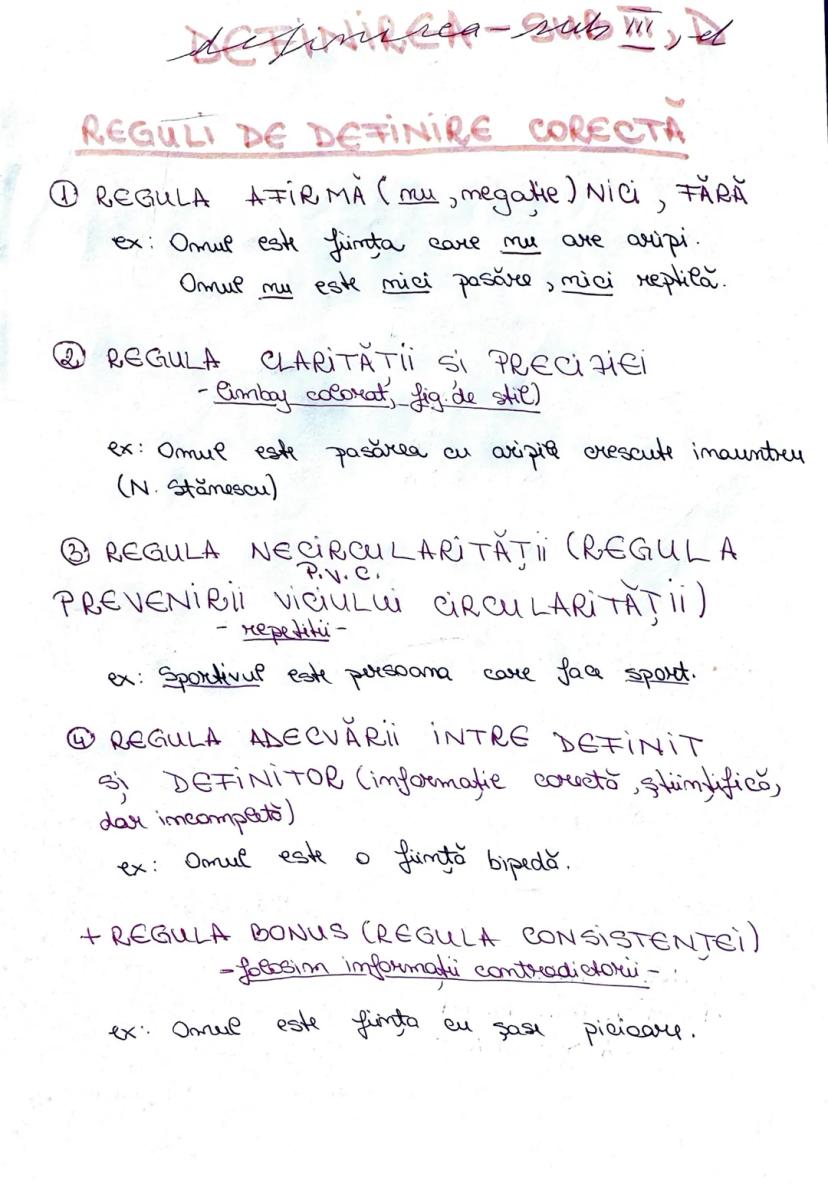 definirea - sub III, d
REGULI DE DEFINIRE CORECTĂ
① REGULA AFIRMĂ (nu, negație) NICI, FĂRĂ
ex: Omul este ființa care nu are aripi.
Omul nu este nici pasăre, nici reptilă.
② REGULA CLARITĂTII SI PRECIZIEI
- limbaj colorat, fig. de stil)
ex: Omul este pasărea cu aripile crescute inauntru
(N. Stănescu)
③ REGULA NECIRCULARITĂȚII (REGULA
P.V.C.
PREVENIRII VICIULUI CIRCULARITĂȚII)
- repetitii -
ex: Sportivul este persoana care face sport.
④ REGULA ADECVĂRII INTRE DEFINIT
și DEFINITOR (informație corectă, științifică,
dar incompletă)
ex: Omul este o ființă bipedă.
+ REGULA BONUS (REGULA CONSISTENȚEI)
- folosim informații contradictorii -
ex: Omul este ființa cu șase picioare.